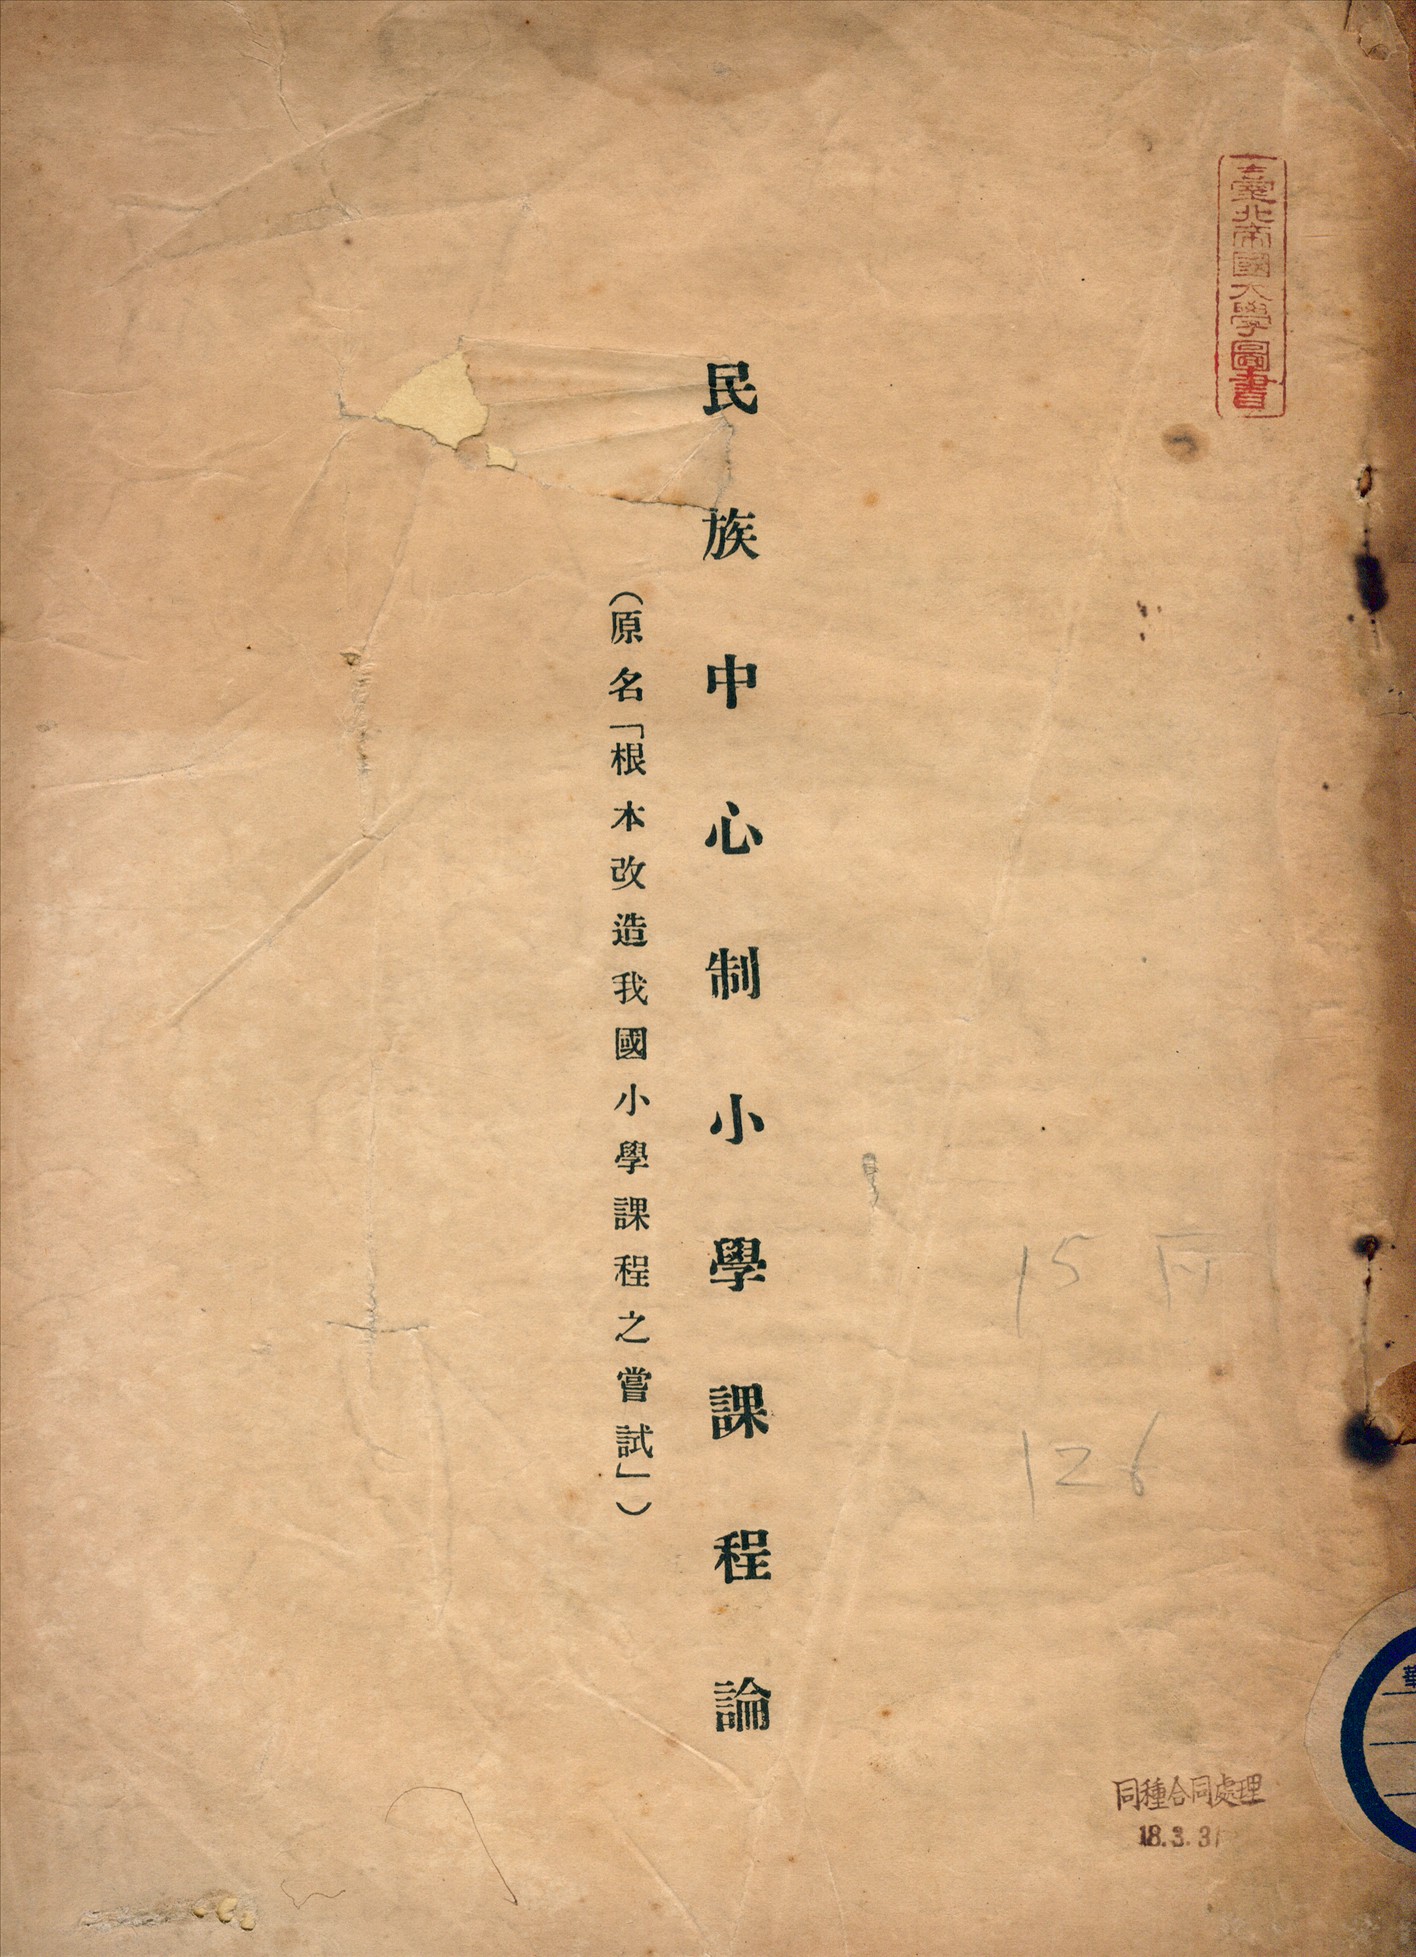 臺北帝國大學圖書
民族中心制小學課程論
(原名「根本改造我國小學課程之嘗試」)
15
126
華
同種合同處理
18.3.31